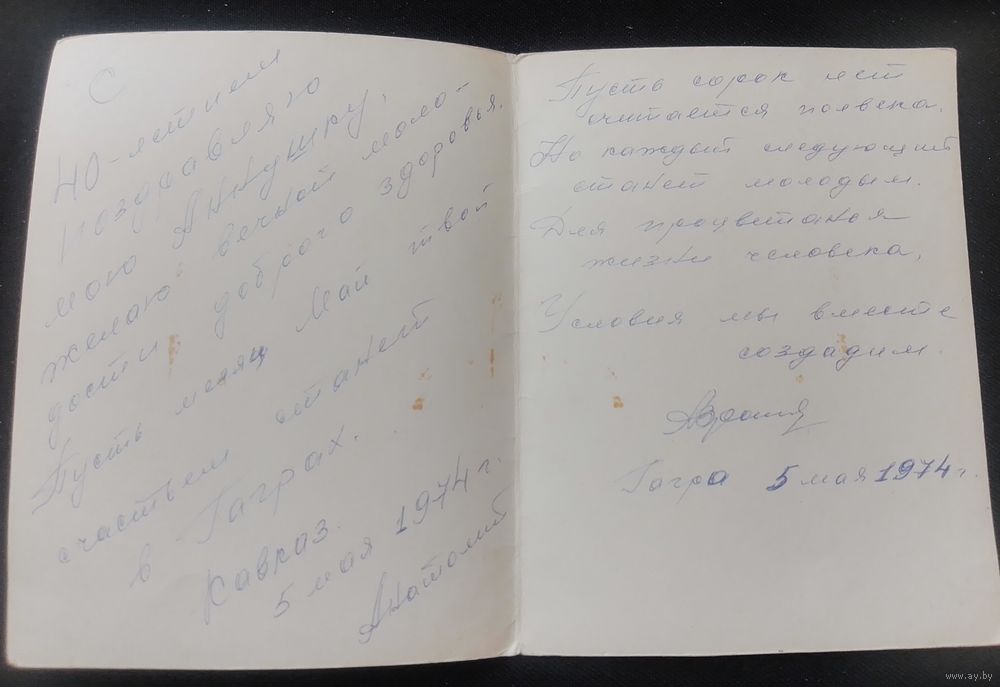 С
40-летием
поздравляю
мою Аннушку,
желаю вечной моло-
дости доброго здоровья.
Пусть месяц Май твой
счастьем станет
в Гаграх.
Кавказ.
5 мая 1974 г.
Анатолий
Пусть сорок лет
считается полвека.
Но каждый следующий
станет молодым.
Для процветания
жизни человека,
Условия мы вместе
создадим.
Гагра 5 мая 1974 г.
www.ay.by